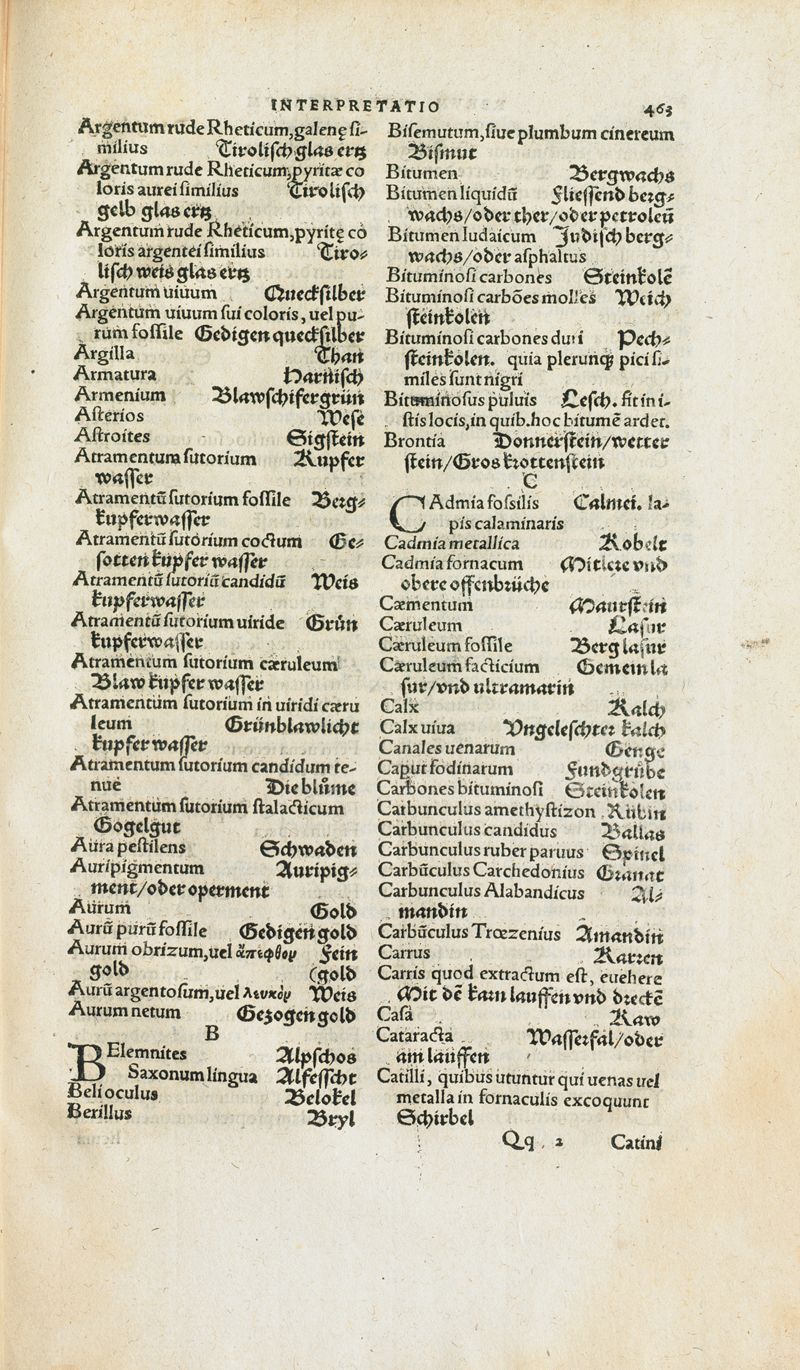 INTERPRETATIO 463
Argentum rude Rheticum, galenę si-
milius Tirolisch glas ertz
Argentum rude Rheticum, pyritæ co
loris aurei similius Tirolisch
gelb glas ertz
Argentum rude Rheticum, pyritę co
loris argentei similius Tiro-
lisch weis glas ertz
Argentum uiuum Quecksilber
Argentum uiuum sui coloris, uel pu-
rum fossile Gedigen quecksilber
Argilla Than
Armatura Harnisch
Armenium Blawschifergrün
Asterios Wese
Astroites Sigstein
Atramentum sutorium Kupfer
wasser
Atramentū sutorium fossile Berg-
kupferwasser
Atramentū sutorium coctum Ge-
sotten kupfer wasser
Atramentū sutoriū candidū Weis
kupferwasser
Atramentū sutorium uiride Grůn
kupferwasser
Atramentum sutorium cæruleum
Blaw kupfer wasser
Atramentum sutorium in uiridi cæru
leum Grünblawlicht
kupfer wasser
Atramentum sutorium candidum te-
nue Die blůme
Atramentum sutorium stalacticum
Gogelgut
Aura pestilens Schwaden
Auripigmentum Auripig-
ment/oder operment
Aurum Gold
Aurū purū fossile Gedigen gold
Aurum obrizum, uel ἄπεφθον Fein
gold (gold
Aurū argentosum, uel λευκὸν Weis
Aurum netum Gezogen gold
B
BElemnites Alpschos
Saxonum lingua Alfesscht
Belioculus Belokel
Berillus Bryl
Bisemutum, siue plumbum cinereum
Bismut
Bitumen Bergwachs
Bitumen liquidū Fliessend berg-
wachs/oder ther/oder petroleū
Bitumen Iudaicum Judisch berg-
wachs/oder asphaltus
Bituminosi carbones Steinkolē
Bituminosi carbões molles Weich
steinkolen
Bituminosi carbones duri Pech-
steinkolen. quia plerunq; pici si-
miles sunt nigri
Bituminosus puluis Lesch. fit in i-
stis locis, in quib. hoc bitumē ardet.
Brontia Donnerstein/wetter
stein/Gros krottenstein
C
CAdmia fossilis Calmei. la-
pis calaminaris
Cadmia metallica Kobelt
Cadmia fornacum Mitlere vnd
obere offenbrüche
Cæmentum Maurstein
Cæruleum Lasur
Cæruleum fossile Berg lasur
Cæruleum facticium Gemein la
sur/vnd ultramarin
Calx Kalch
Calx uiua Vngeleschter kalch
Canales uenarum Genge
Caput fodinarum Fundgrůbe
Carbones bituminosi Steinkolen
Carbunculus amethystizon Rubin
Carbunculus candidus Ballas
Carbunculus ruber paruus Spinel
Carbūculus Carchedonius Granat
Carbunculus Alabandicus Al-
mandin
Carbūculus Trœzenius Amandin
Carrus Karren
Carris quod extractum est, euehere
Mit dē karn lauffen vnd dreckē
Casa Kaw
Cataracta Wasserfal/oder
am lauffen
Catilli, quibus utuntur qui uenas uel
metalla in fornaculis excoquunt
Schirbel
Qq 2 Catini